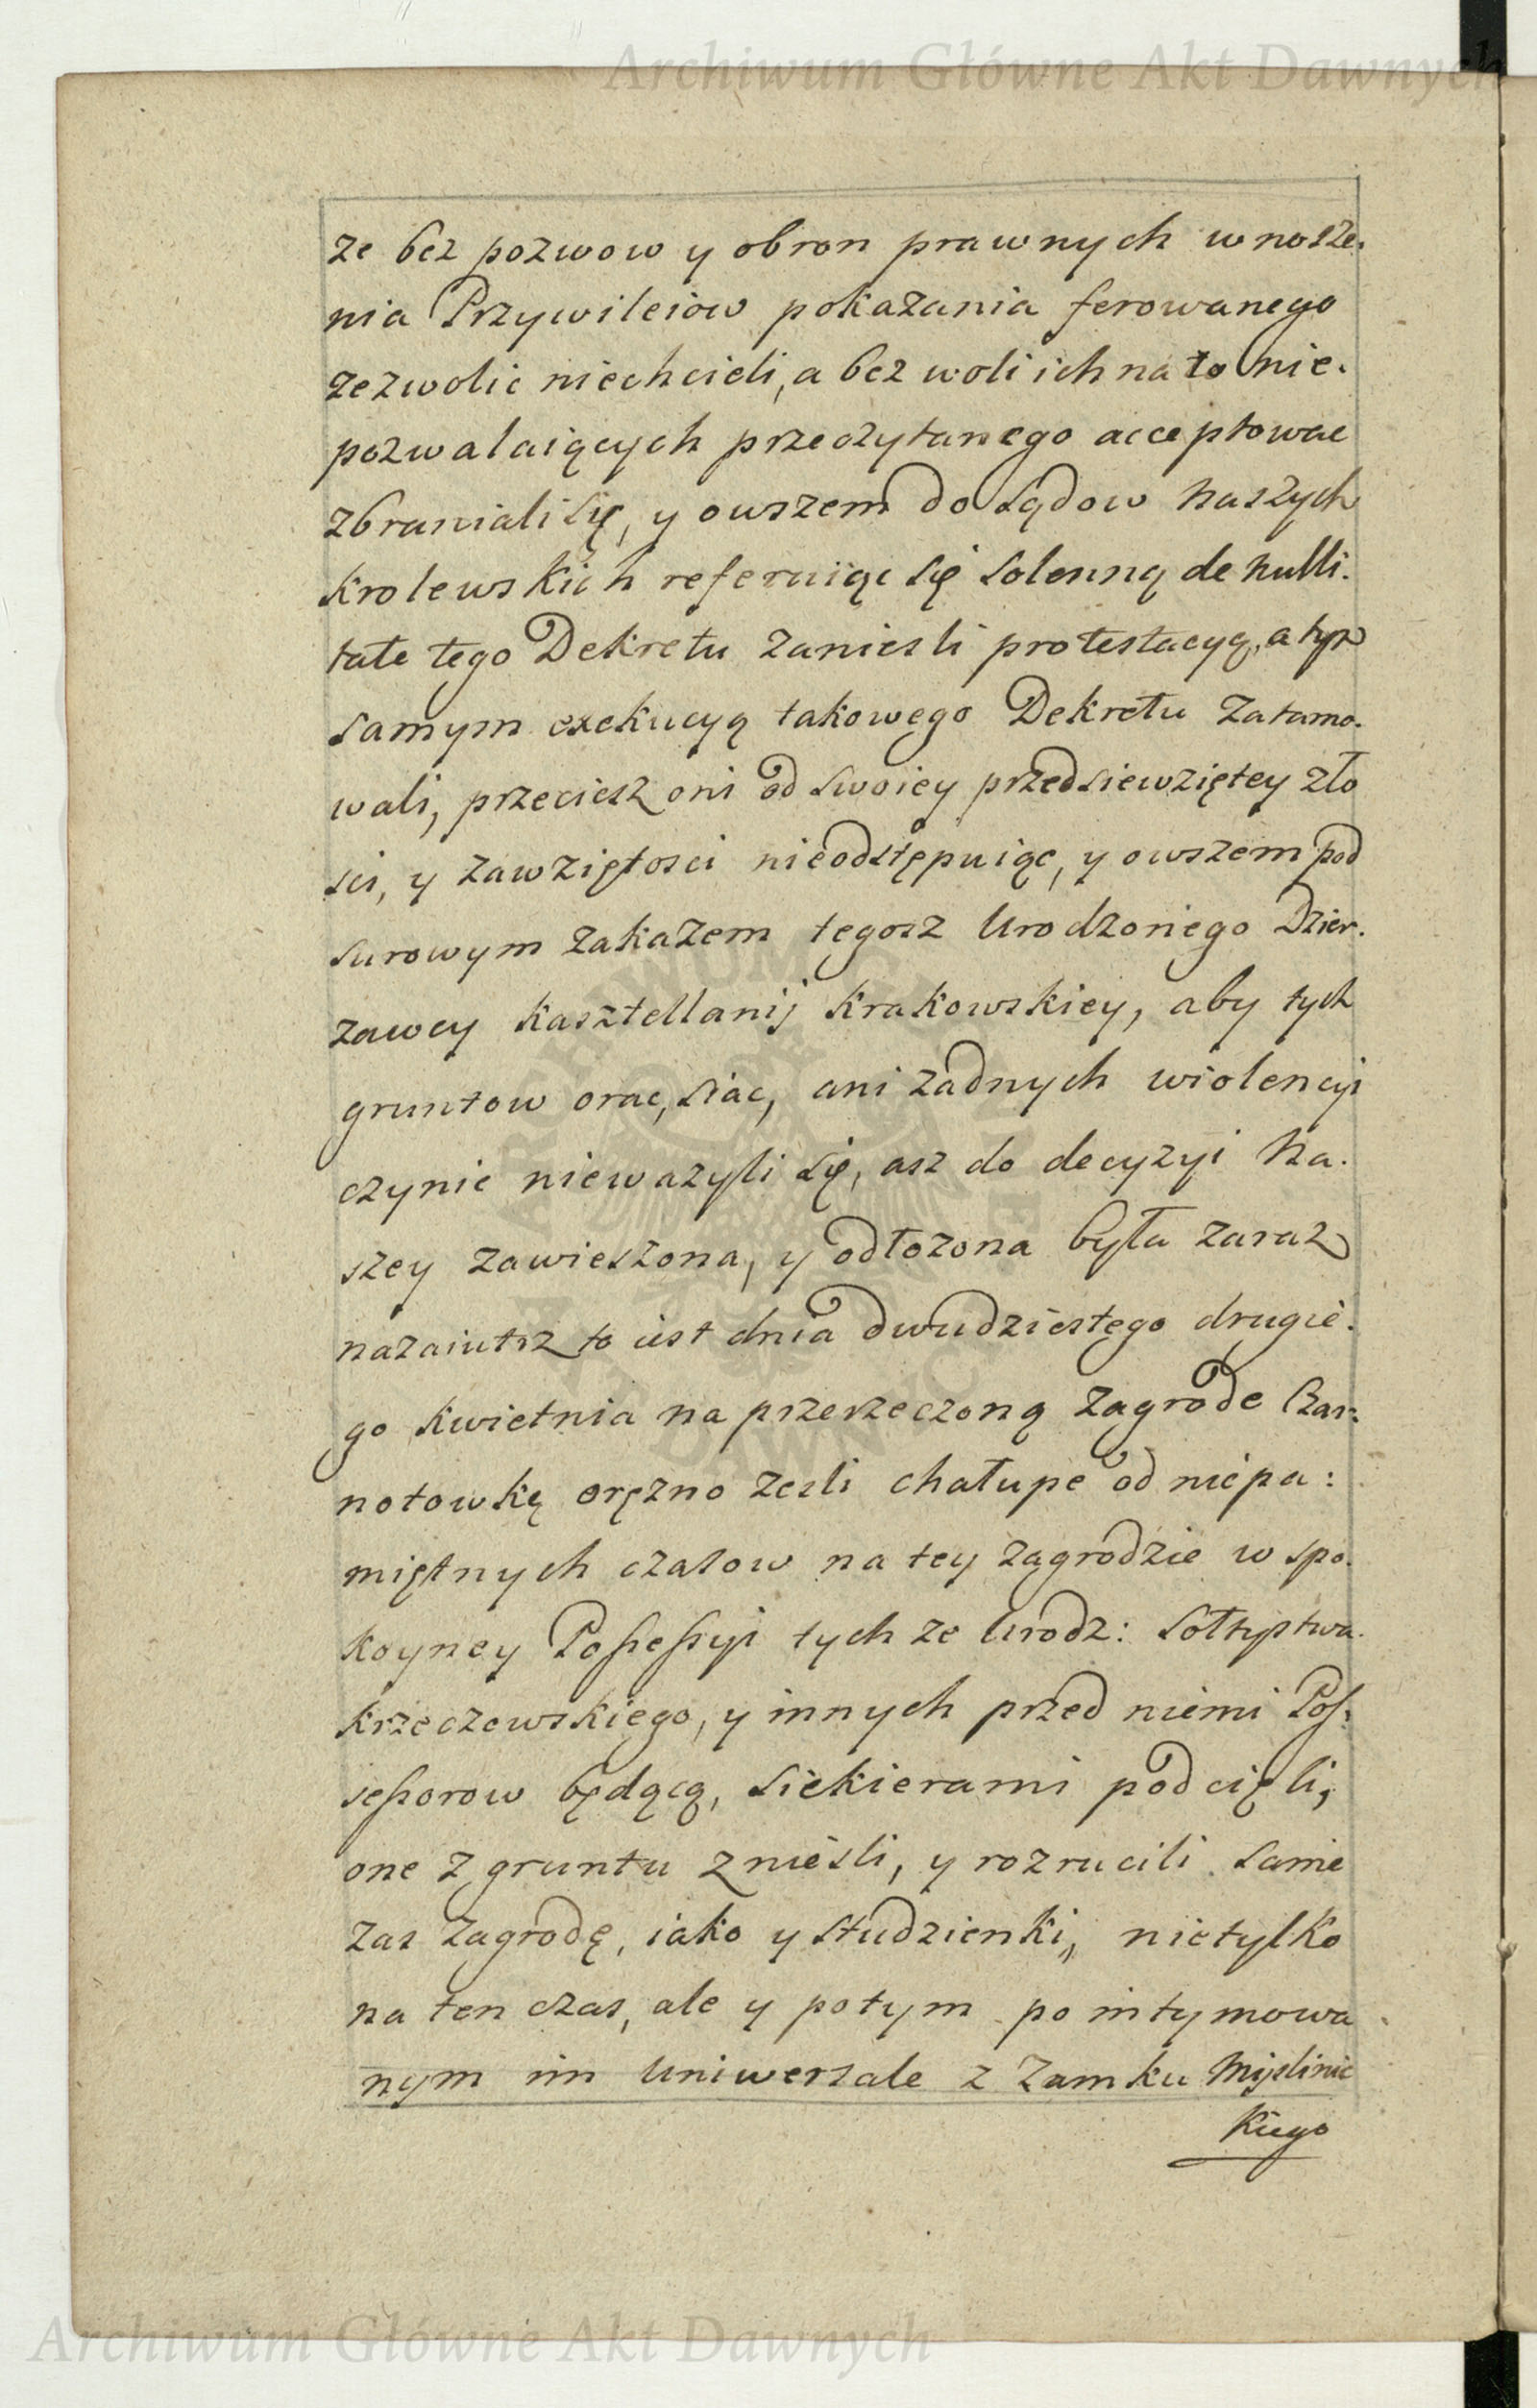 Archiwum Główne Akt Dawnych
ze bez pozwow y obron prawnych wnosze.
nia Przywileiow pokazania ferowanego
zezwolic niechcieli, a bez woli ich na to nie.
pozwalaiących przeczytanego acceptowac
zbraniali się, y owszem do Sądow Naszych
Krolewskich referuiąc się Solenną de Nulli.
tate tego Dekretu zaniesli protestacyą, a tym
samym exekucyą takowego Dekretu zatamo.
wali, przeciesz oni od swoiey przedsiewziętey zło
sci, y zawziętosci nieodstępuiąc, y owszem pod
surowym zakazem tegosz Urodzonego Dzier.
zawcy Kasztellanij Krakowskiey, aby tych
gruntow orac, siac, ani zadnych wiolencyi
czynic niewazyli się, asz do decyzyi Na.
szey zawieszona, y odłozona była zaraz
nazaiutrz to iest dnia dwudziestego drugie.
go Kwietnia na przerzeczoną Zagrode Czar:
notowkę oręzno zesli chałupe od niepa:
miętnych czasow na tey zagrodzie w spo.
koyney Possessyi tych ze Urodz: Sołtystwa
Krzeczowskiego, y innych przed niemi Pos:
sessorow będącą, siekierami podcięli,
one z gruntu znieśli, y rozrucili samę
zas zagrodę, iako y Studzienki, nietylko
na ten czas, ale y potym po intymowa
nym im Uniwersale z Zamku Myslinic
kiego
Archiwum Główne Akt Dawnych